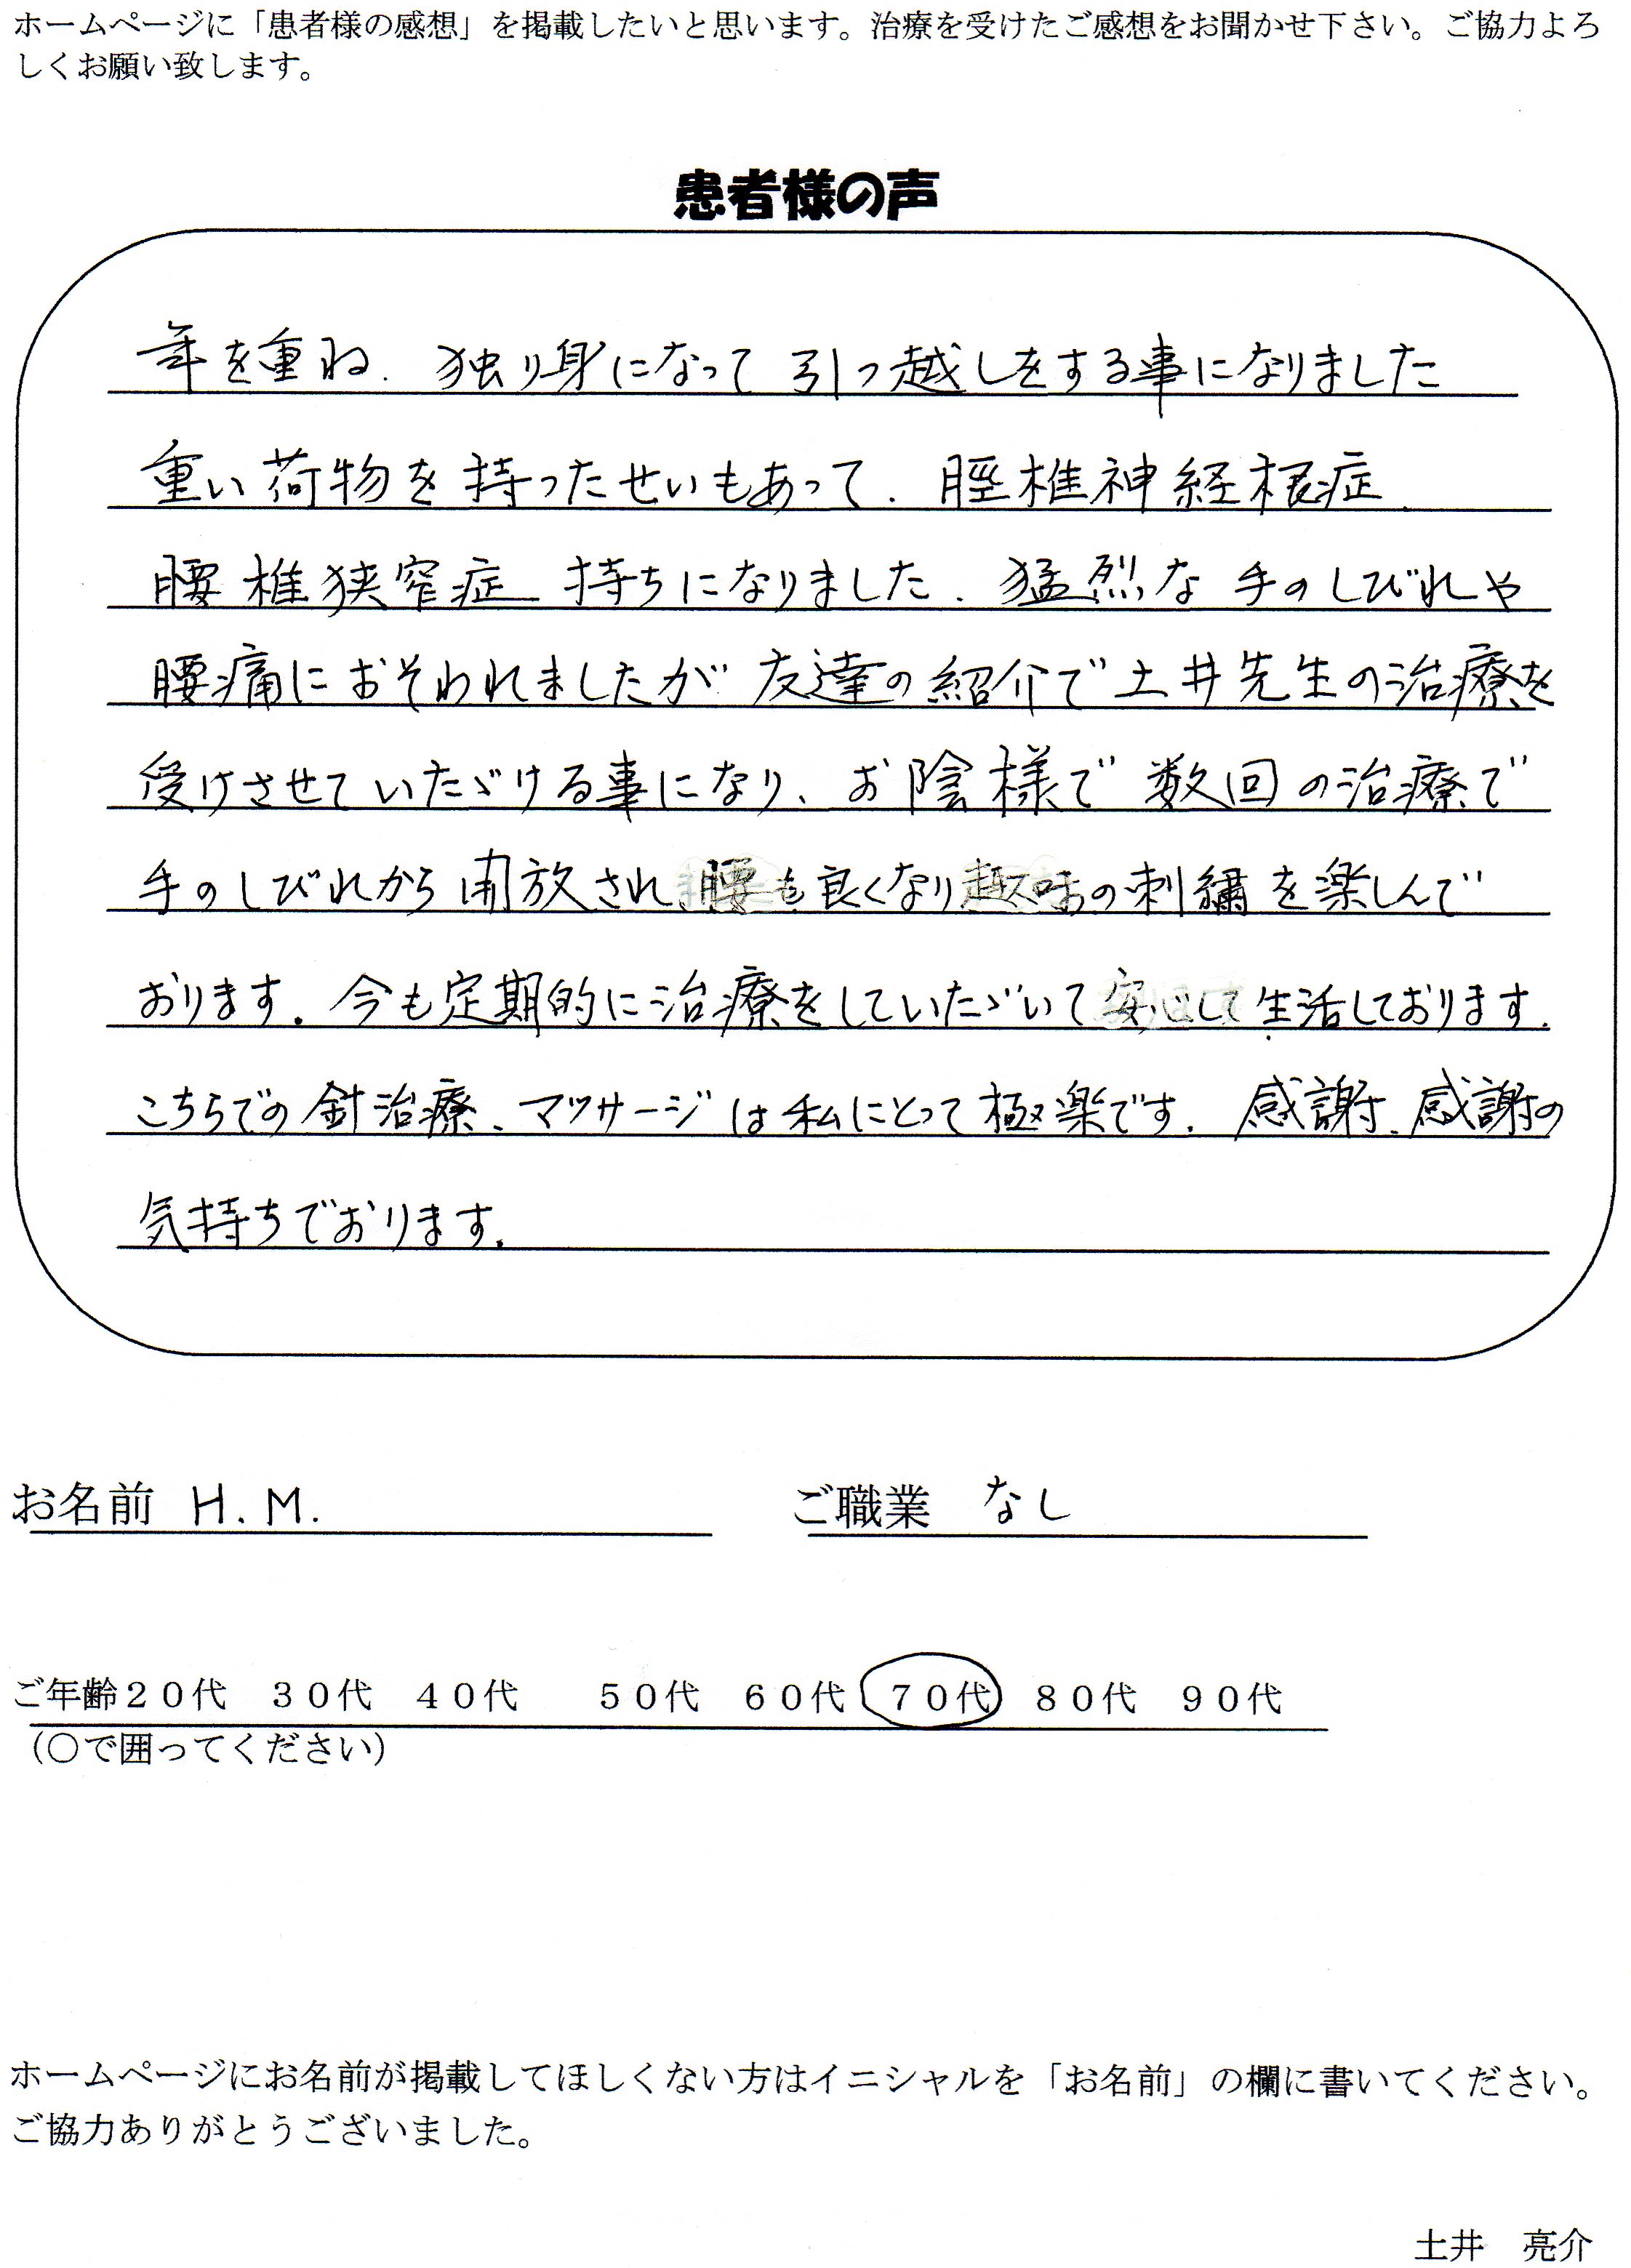 ホームページに「患者様の感想」を掲載したいと思います。治療を受けたご感想をお聞かせ下さい。ご協力よろ
しくお願い致します。
患者様の声
年を重ね、独り身になって引っ越しをする事になりました
重い荷物を持ったせいもあって、脛椎神経根症、
腰椎狭窄症 持ちになりました。猛烈な手のしびれや
腰痛におそわれましたが友達の紹介で土井先生の治療を
受けさせていたゞける事になり、お陰様で数回の治療で
手のしびれから開放され腰も良くなり趣味の刺繍を楽しんで
おります。今も定期的に治療をしていたゞいて安心して生活しております。
こちらでの針治療、マッサージは私にとって極楽です。感謝、感謝の
気持ちでおります。
お名前 H.M. ご職業 なし
ご年齢20代 30代 40代 50代 60代 70代 80代 90代
（○で囲ってください）
ホームページにお名前が掲載してほしくない方はイニシャルを「お名前」の欄に書いてください。
ご協力ありがとうございました。
土井 亮介